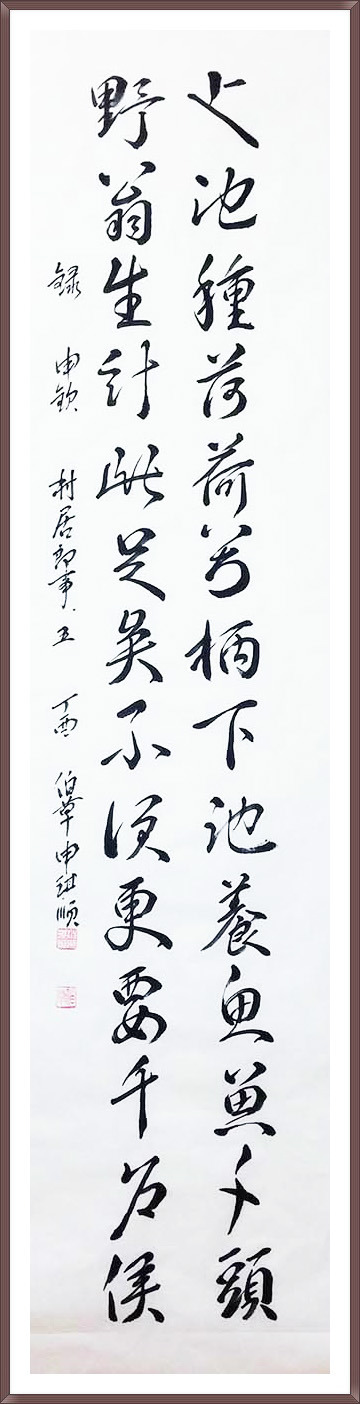 上池種荷荷万柄下池養魚魚千頭
野翁生計此足矣不須更要千戶侯
錄 申欽 村居卽事 五 丁酉 申 順